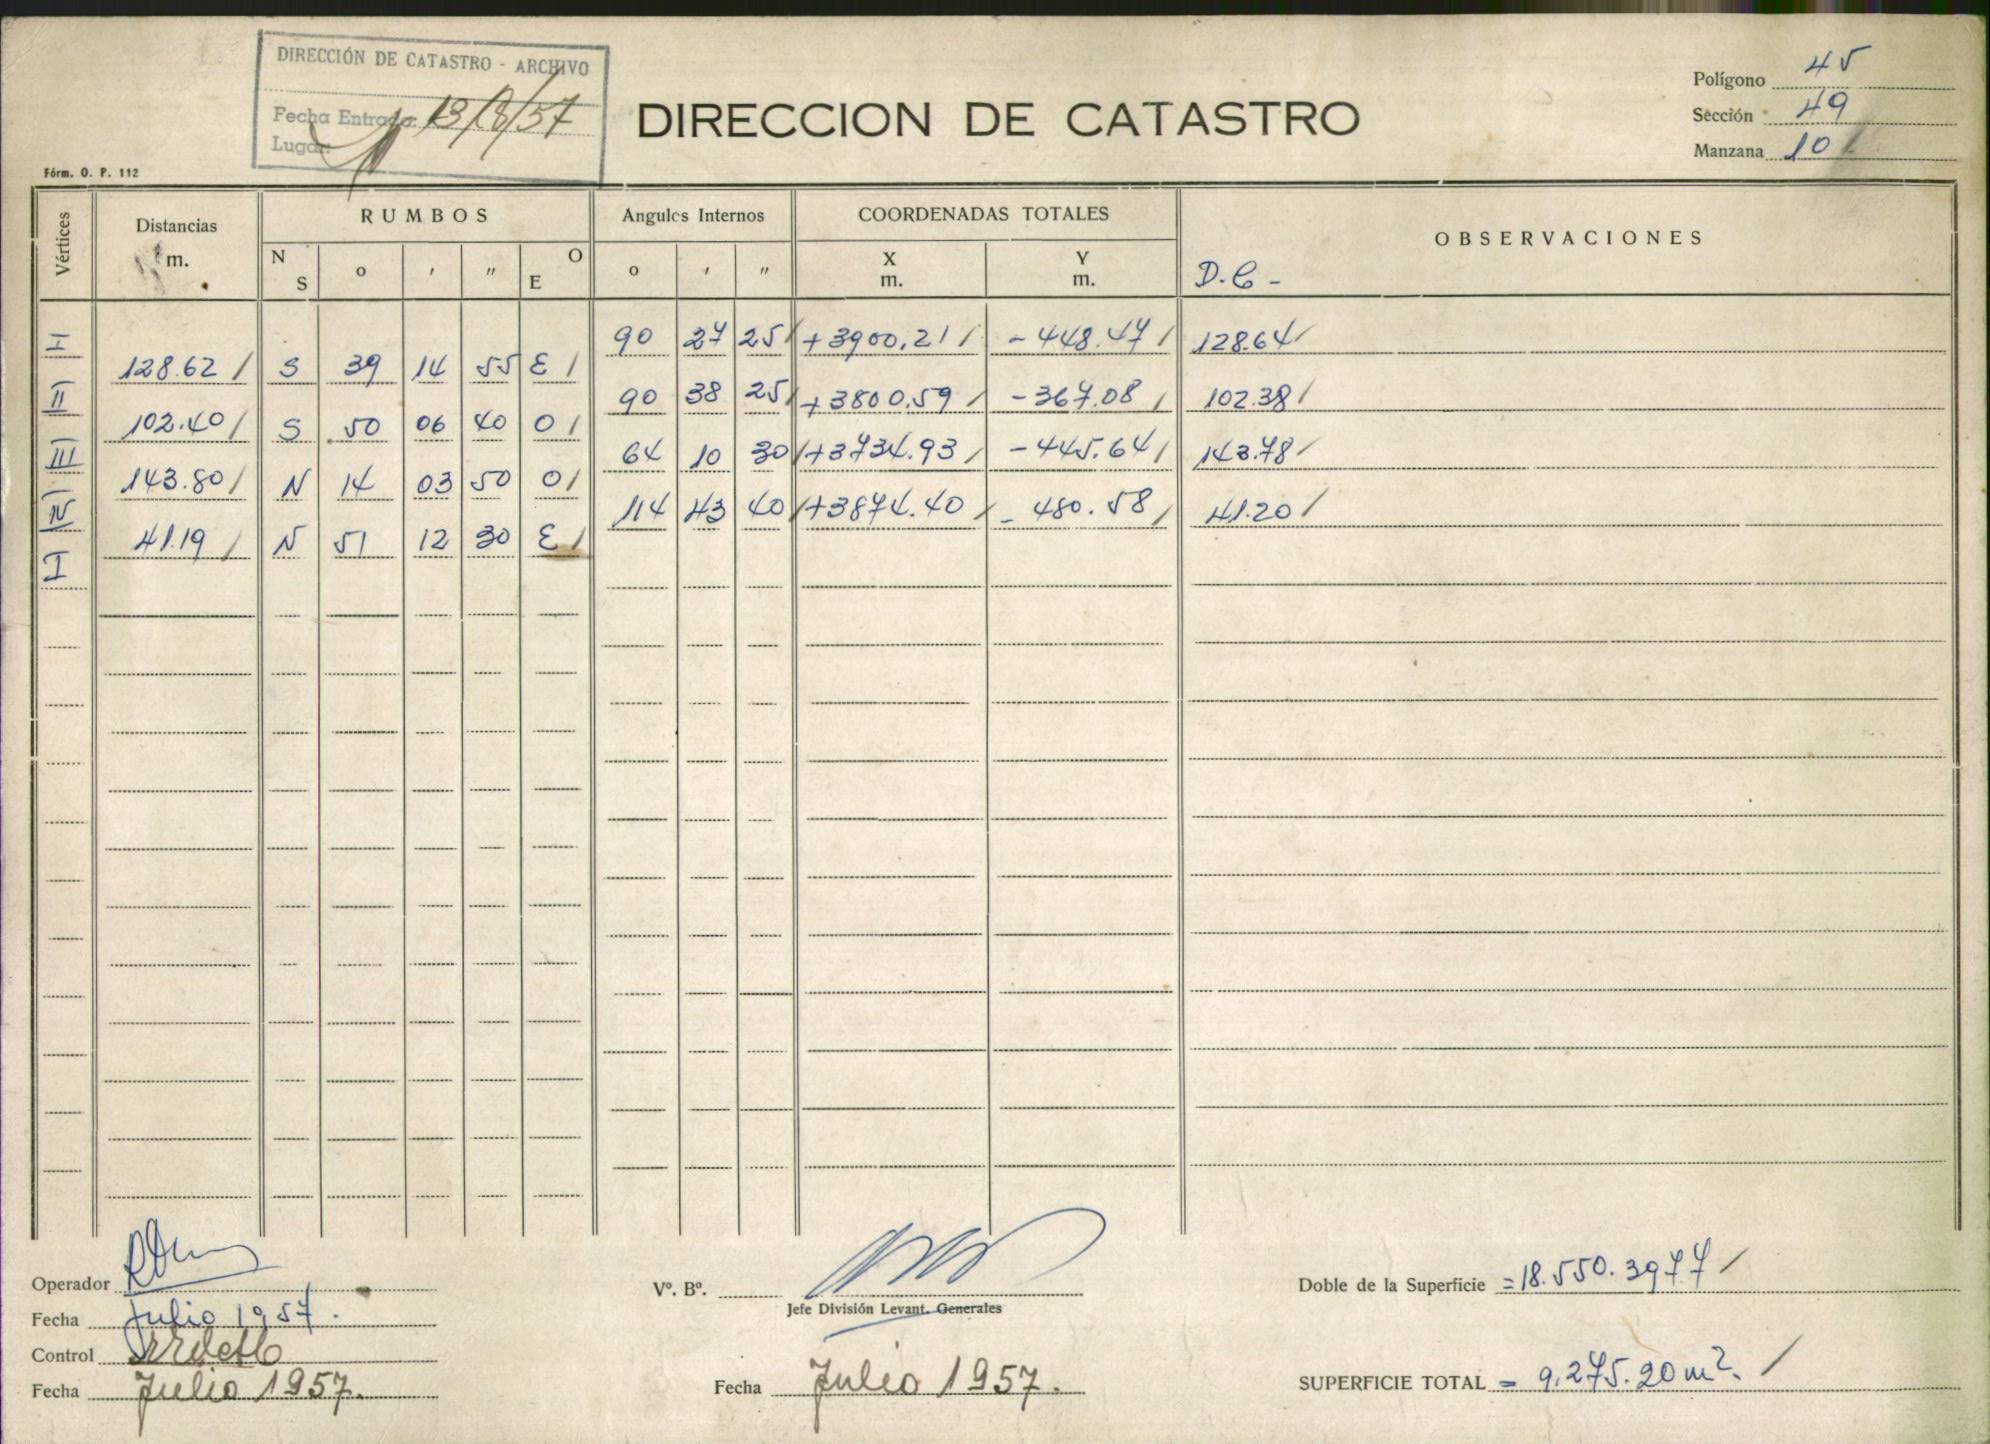 DIRECCIÓN DE CATASTRO - ARCHIVO
Fecha Entrada: 13/8/57
Lugar:
DIRECCION DE CATASTRO
Polígono 45
Sección 49
Manzana 10
Fórm. O. P. 112
Vértices
Distancias m.
RUMBOS
N S o ′ ″ O E
Angulos Internos
o ′ ″
COORDENADAS TOTALES
X m. Y m.
OBSERVACIONES
D.C-
I 90 27 25 / +3900.21 / -448.47 / 128.64 /
128.62 / S 39 14 55 E /
II 90 38 25 / +3800.59 / -367.08 / 102.38 /
102.40 / S 50 06 40 O /
III 64 10 30 / +3734.93 / -445.64 / 143.78 /
143.80 / N 14 03 50 O /
IV 114 43 40 / +3874.40 / -480.58 / 41.20 /
41.19 / N 51 12 30 E /
I
Operador
Fecha Julio 1957.
Control
Fecha Julio 1957.
Vº. Bº.
Jefe División Levant. Generales
Fecha Julio 1957.
Doble de la Superficie = 18.550.3977 /
SUPERFICIE TOTAL = 9.275.20 m². /